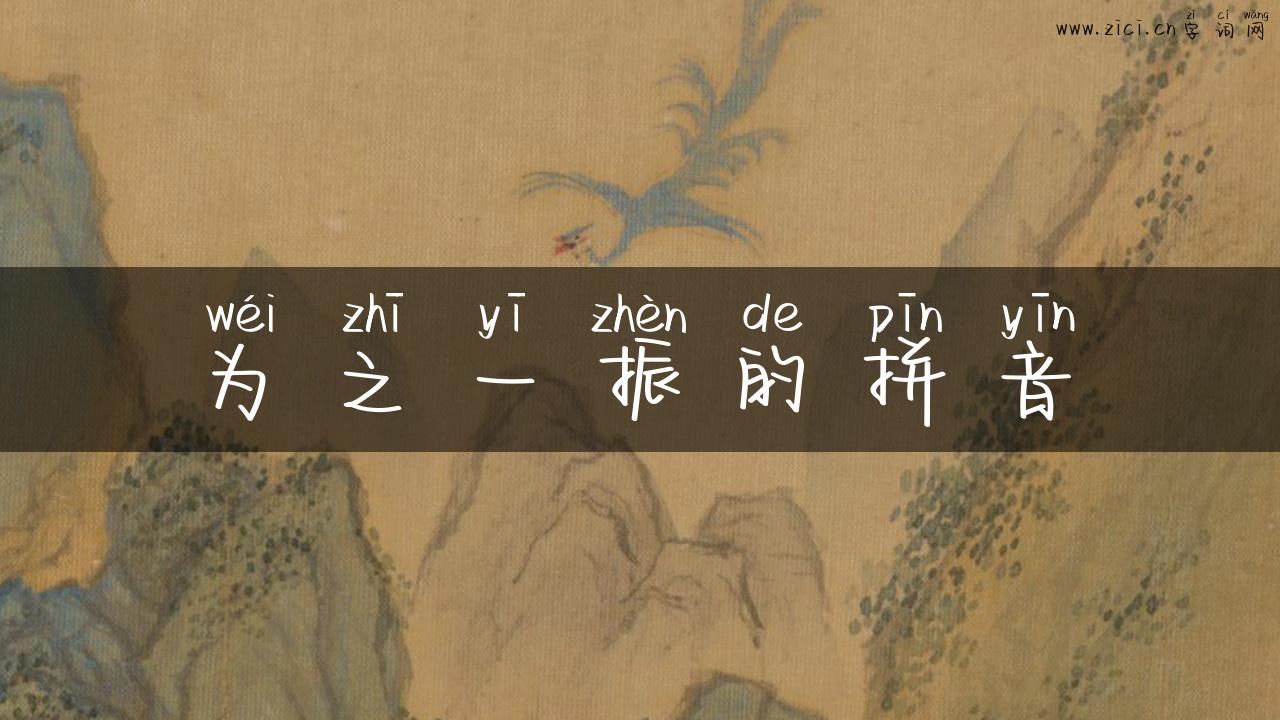 zì cí wǎng
www.zici.cn字词网
wéi zhī yī zhèn de pīn yīn
为之一振的拼音